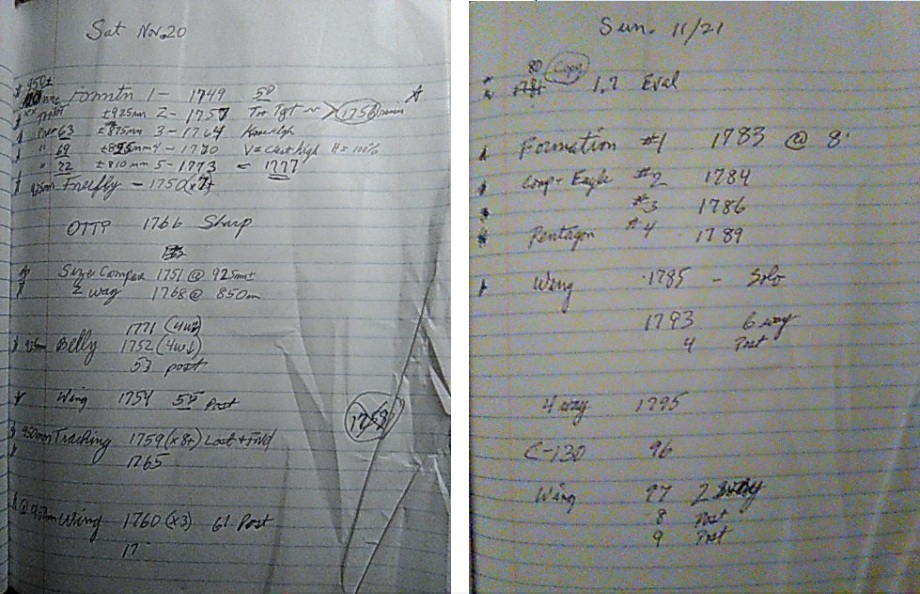 Sat Nov. 20
950±
Formtn 1 - 1749 50
±925mm 2 - 1757 Tgt 1758
63 ±875mm 3 - 1764
" 69 4 - 1770 V = chest high H = 100%
" 72 ±810mm 5 - 1773 = 1777
925mm Firefly - 1750
OTTP 1766 Sharp
Size Compar 1751 @ 925mm±
2 way 1768 @ 850m
1771 (4w
Belly 1752 (4w↓)
53 post
Wing 1754 55 Post
1758
950mm Tracking 1759 (x8±)
1765
Wing 1760 (x3) 61 Post
17
Sun. 11/21
80 Copy
1.7 Eval
Formation #1 1783 @ 8'
Comp - Eagle #2 1784
#3 1786
Pentagon #4 1789
Wing 1785 - Solo
1793 6 way
4 Post
4 way 1795
C-130 96
Wing 97 2
8 Post
9 Post